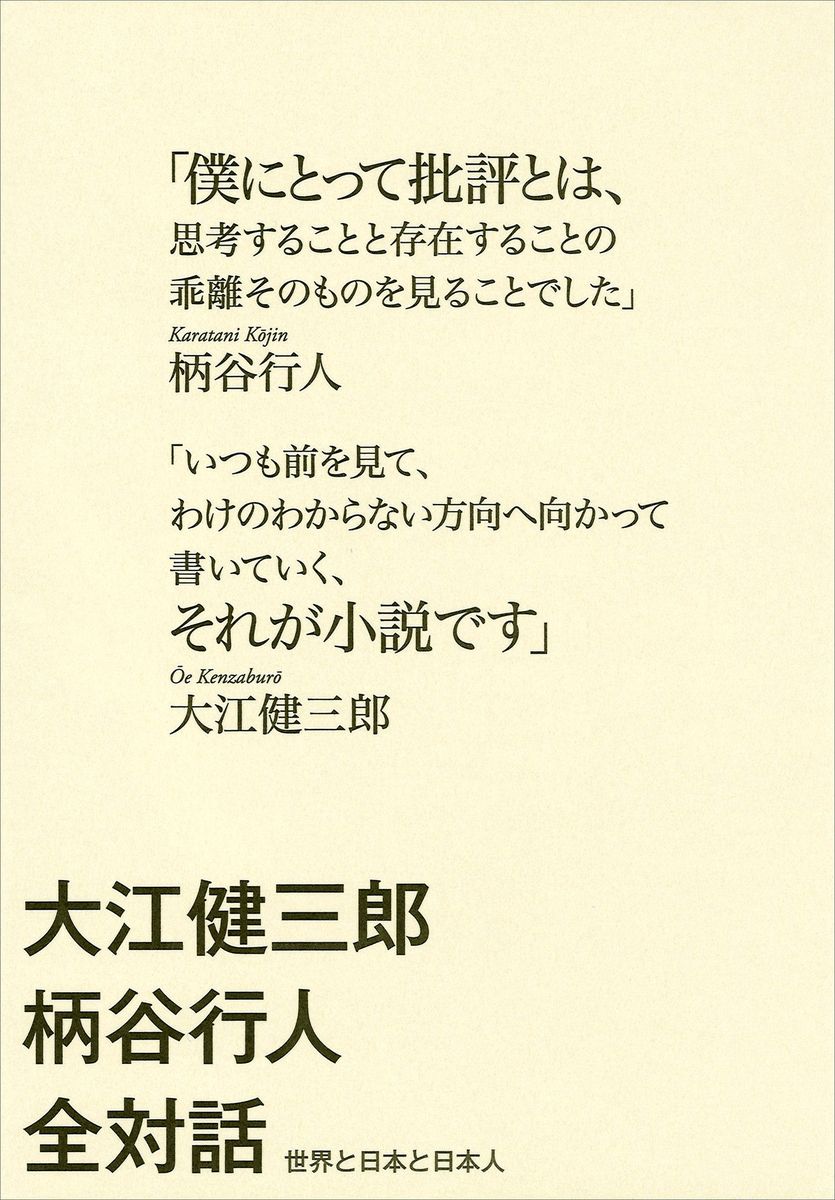 「僕にとって批評とは、
思考することと存在することの
乖離そのものを見ることでした」
Karatani Kōjin
柄谷行人
「いつも前を見て、
わけのわからない方向へ向かって
書いていく、
それが小説です」
Ōe Kenzaburō
大江健三郎
大江健三郎
柄谷行人
全対話 世界と日本と日本人